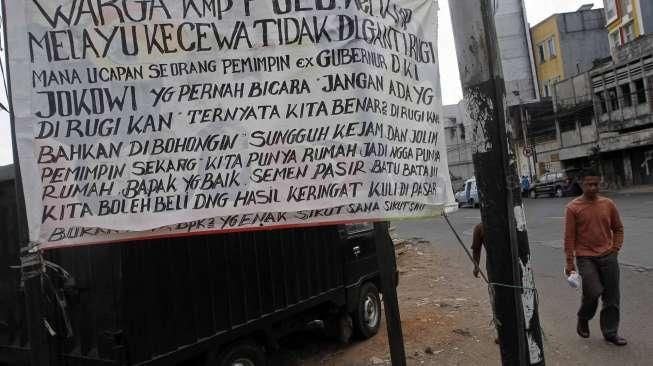 WARGA KMP PULO
MELAYU KECEWA TIDAK DI GANTI RUGI
MANA UCAPAN SEORANG PEMIMPIN ex GUBERNUR DKI
JOKOWI YG PERNAH BICARA "JANGAN ADA YG
DI RUGI KAN" TERNYATA KITA BENAR2 DI RUGI KAN
BAHKAN DI BOHONGIN "SUNGGUH KEJAM DAN JOLIM
PEMIMPIN SEKARG" KITA PUNYA RUMAH JADI NGGA PUNYA
RUMAH. BAPAK YG BAIK. SEMEN PASIR BATU BATA INI
KITA BOLEH BELI DNG HASIL KERINGAT KULI DI PASAR
BPK2 YG ENAK SIKUT SANA SIKUT